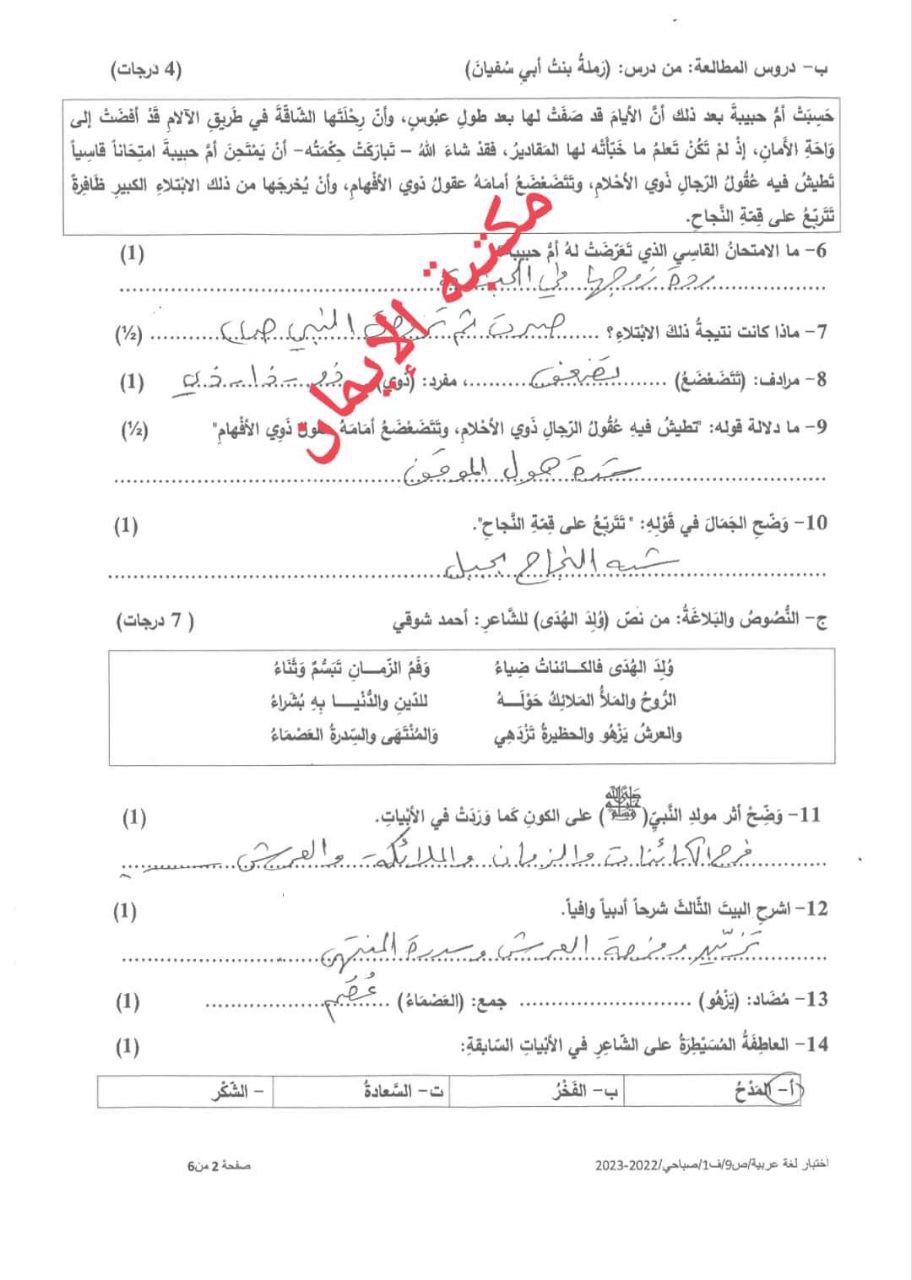 ب- دروس المطالعة: من درس: (رَملةُ بنتُ أبي سُفيانَ) (4 درجات)
حَسِبَتْ أمُّ حبيبةَ بعد ذلك أنَّ الأيامَ قد صَفَتْ لها بعد طولِ عبُوسٍ، وأنّ رِحْلَتَها الشاقّةَ في طَريقِ الآلامِ قَدْ أفضَتْ إلى
وَاحَةِ الأَمانِ، إذْ لمْ تَكُنْ تَعلمُ ما خَبَّأتْه لها المَقاديرُ، فقدْ شاءَ اللهُ – تَبارَكَتْ حِكْمَتُه- أن يَمْتَحِنَ أمَّ حَبيبةَ امتِحَاناً قاسِياً
تَطيشُ فيه عُقُولُ الرّجالِ ذَوي الأَحْلام، وتَتَضَعْضَعُ أمامَهُ عقولُ ذَوي الأفْهامِ، وأنْ يُخرِجَها من ذلك الابْتلاءِ الكبيرِ ظافِرةً
تَتَربّعُ على قِمّةِ النَّجاحِ.
6- ما الامتحانُ القاسِي الذي تَعَرّضَتْ لهُ أمُّ حبيبةَ (1)
ردة زوجها في
7- ماذا كانت نتيجةُ ذلكَ الابْتلاءِ؟ صبرت ثم تزوجت النبي (½)
8- مرادف: (تَتَضَعْضَعُ) تضعف، مفرد: (ذَوي) ذو - ذا - ذي (1)
9- ما دلالة قوله: "تَطيشُ فيهِ عُقُولُ الرّجالِ ذَوي الأحْلامِ، وتَتَضَعْضَعُ أمَامَهُ عقولُ ذَوِي الأفْهامِ" (½)
شدة هول الموقف
10- وَضّحِ الجَمَالَ في قَوْلِهِ: "تَتَربّعُ على قِمّةِ النَّجاحِ". (1)
شبه النجاح بجبل
ج- النُّصُوصُ والبَلاغَةُ: من نَصّ (وُلِدَ الهُدَى) للشَّاعرِ: أحمد شوقي (7 درجات)
وُلِدَ الهُدَى فالكائناتُ ضِياءُ وَفَمُ الزّمـــانِ تَبَسُّمٌ وَثَنَاءُ
الرُّوحُ والمَلأُ المَلائِكُ حَوْلَـــهُ للدّينِ والدُّنْيـــا بِهِ بُشَراءُ
والعرشُ يَزْهُو والحظيرةُ تَزْدَهِي وَالمُنْتَهَى والسِّدرةُ العَصْمَاءُ
11- وَضّحْ أثر مولدِ النَّبيّ(ﷺ) على الكونِ كَما وَرَدَتْ في الأبْياتِ. (1)
فرح الكائنات والزمان والملائكة والعرش
12- اشرحِ البيتَ الثّالثَ شرحاً أدبياً وافياً. (1)
تزيين وفرحة العرش وسدرة المنتهى
13- مُضَاد: (يَزْهُو) جمع: (العَصْمَاءُ) عُصْم (1)
14- العاطِفَةُ المُسَيْطِرَةُ على الشّاعِرِ في الأبْياتِ السّابقةِ: (1)
أ- المَدْحُ ب- الفَخْرُ ت- السَّعادةُ - الشّكْر
اختبار لغة عربية/ص9/ف1/صباحي/2022-2023 صفحة 2 من6
مكتبة الإيمان